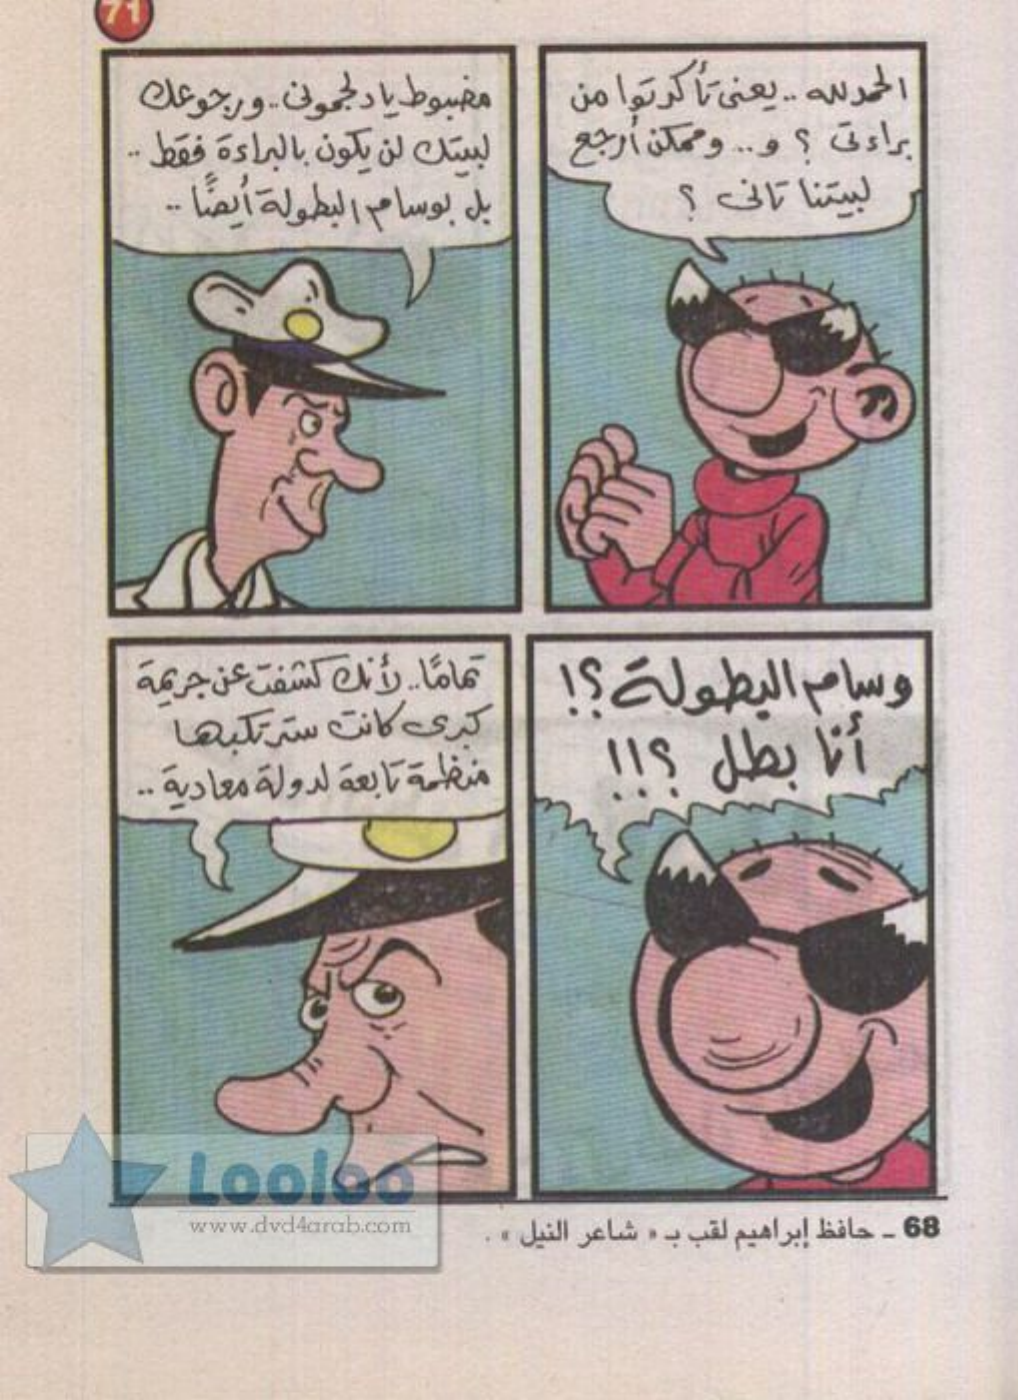 71
الحمد لله .. يعنى تأكدتوا من
براءتى ؟ و.. وممكن أرجع
لبيتنا تانى ؟
مضبوط يا دلجمونى .. ورجوعك
لبيتك لن يكون بالبراءة فقط ..
بل بوسام البطولة أيضًا ..
وسام البطولة ؟!
أنا بطل ؟!!
تمامًا .. لأنك كشفت عن جريمة
كبرى كانت سترتكبها
منظمة تابعة لدولة معادية ..
68 ـ حافظ إبراهيم لقب بـ « شاعر النيل » .
Looloo
www.dvd4arab.com